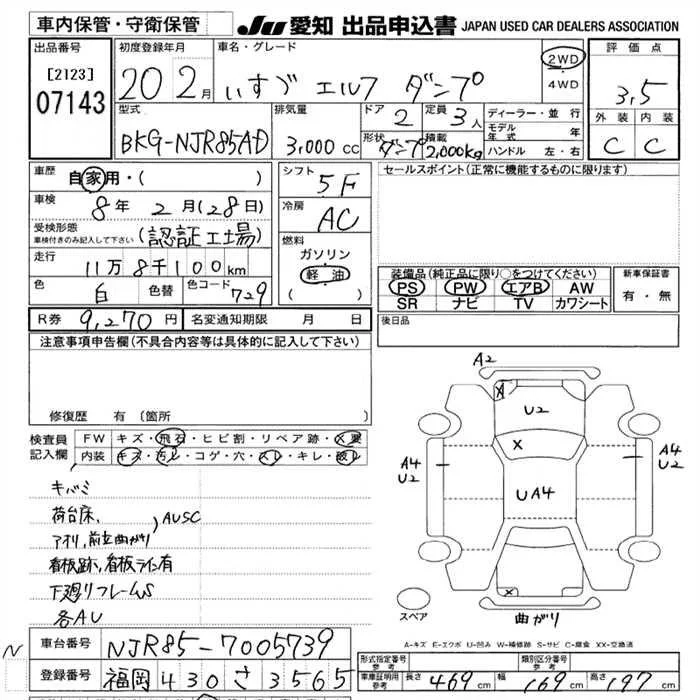 車内保管・守衛保管
JU 愛知 出品申込書 JAPAN USED CAR DEALERS ASSOCIATION
出品番号
[2123]
07143
初度登録年月
20 2月
車名・グレード
いすゞ エルフ ダンプ
2WD
4WD
評価点
3,5
外装 内装
C C
型式
BKG-NJR85AD
排気量
3,000 cc
ドア
2
定員
3人
形状
ダンプ
積載
2,000kg
ディーラー・並行
モデル年式 年
ハンドル 左・右
車歴
自家用・( )
車検
8年 2月(28日)
受検形態
車検付きのみ記入して下さい
(認証工場)
走行
11万8千100km
色
白
色替
色コード
729
シフト
5F
冷房
AC
燃料
ガソリン
軽油
( )
セールスポイント(正常に機能するものに限ります)
装備品(純正品に限り○をつけてください)
PS PW エアB AW
SR ナビ TV カワシート
新車保証書
有・無
R券 9,270円
名変通知期限 月 日
後日品
注意事項申告欄(不具合内容等は具体的に記入して下さい)
修復歴 有(箇所 )
検査員記入欄
FW キズ・飛石・ヒビ割・リペア跡・X要
内装 キズ・汚レ・コゲ・穴・スレ・キレ・破レ
キバミ
荷台床、
アオリ、前立曲がり
AUSC
看板跡、看板ライン有
下廻リフレームS
各AU
A2
U2
X
A4
U2
UA4
A4
U2
曲がり
スペア
A-キズ E-エクボ U-凹み W-補修跡 S-サビ C-腐食 XX-交換済
N
車台番号 NJR85-7005739
登録番号 福岡 430 さ 3565
形式指定番号
参考
類別区分番号
参考
車庫証明用
参考
長さ 469cm
幅 169cm
高さ 197cm